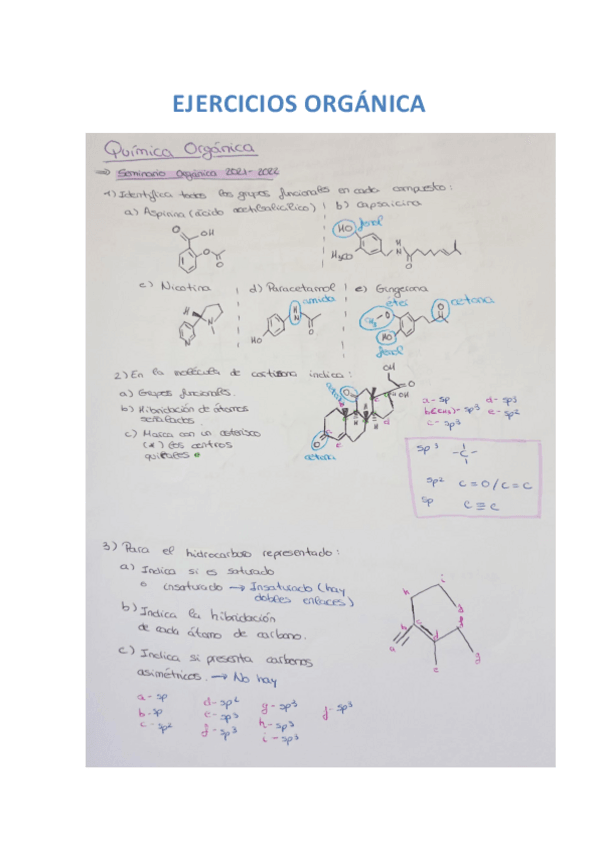 EJERCICIOS ORGÁNICA
Química Orgánica
→ Seminario Orgánica 2021-2022
1) Identifica todos los grupos funcionales en cada compuesto:
a) Aspirina (ácido acetilsalicílico) b) capsaicina
HO fenol
O OH
O O
H₃CO H N O
c) Nicotina d) Paracetamol e) Gingerona
amida éter cetona
H N N
H N O HO
CH₃-O O HO
fenol
2) En la molécula de cortisona indica:
a) Grupos funcionales.
b) Hibridación de átomos
señalados.
c) Marca con un asterisco
(*) los centros
quirales
cetona
OH O OH
O
O
cetona
a- sp d- sp3
b(CH3)- sp3 e- sp2
c- sp3
sp3 -C-
sp2 C=O/C=C
sp C≡C
3) Para el hidrocarburo representado:
a) Indica si es saturado
o insaturado → Insaturado (hay
dobles enlaces)
b) Indica la hibridación
de cada átomo de carbono.
c) Indica si presenta carbonos
asimétricos. → No hay
a- sp d- sp2 g- sp3 j- sp3
b- sp e- sp3 h- sp3
c- sp2 f- sp3 i- sp3
h i
b c d
a e g